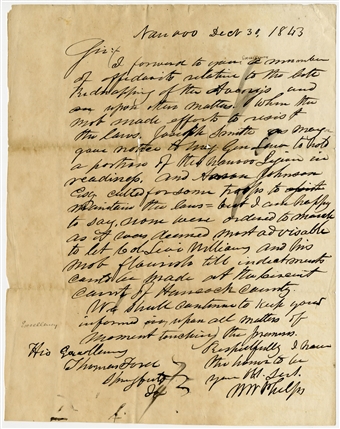 Nauvoo Dec 30, 1843
Sir;
I forward to your Excellency a number
of affidavits relative to the late
kidnapping of the Averys, and
upon other matters. When the
mob made efforts to resist
the laws, Joseph Smith as may-
gave notice to Maj Gen Law to hold
a portion of the Nauvoo Legion in
readiness, and Aaron Johnson
Esq called for some troops to
maintain the laws = but I am happy
to say, none were ordered to march
as it was deemed most advisable
to let Col Levi Williams and his
mob flourish till indictments
can be made at the Circuit
Court of Hancock County.
We shall continue to keep you
informed upon all matters of
moment touching the premises.
Excellency
His Excellency
Thomas Ford
Respectfully I have
the honor to be
your Obt. Servt.
W W Phelps